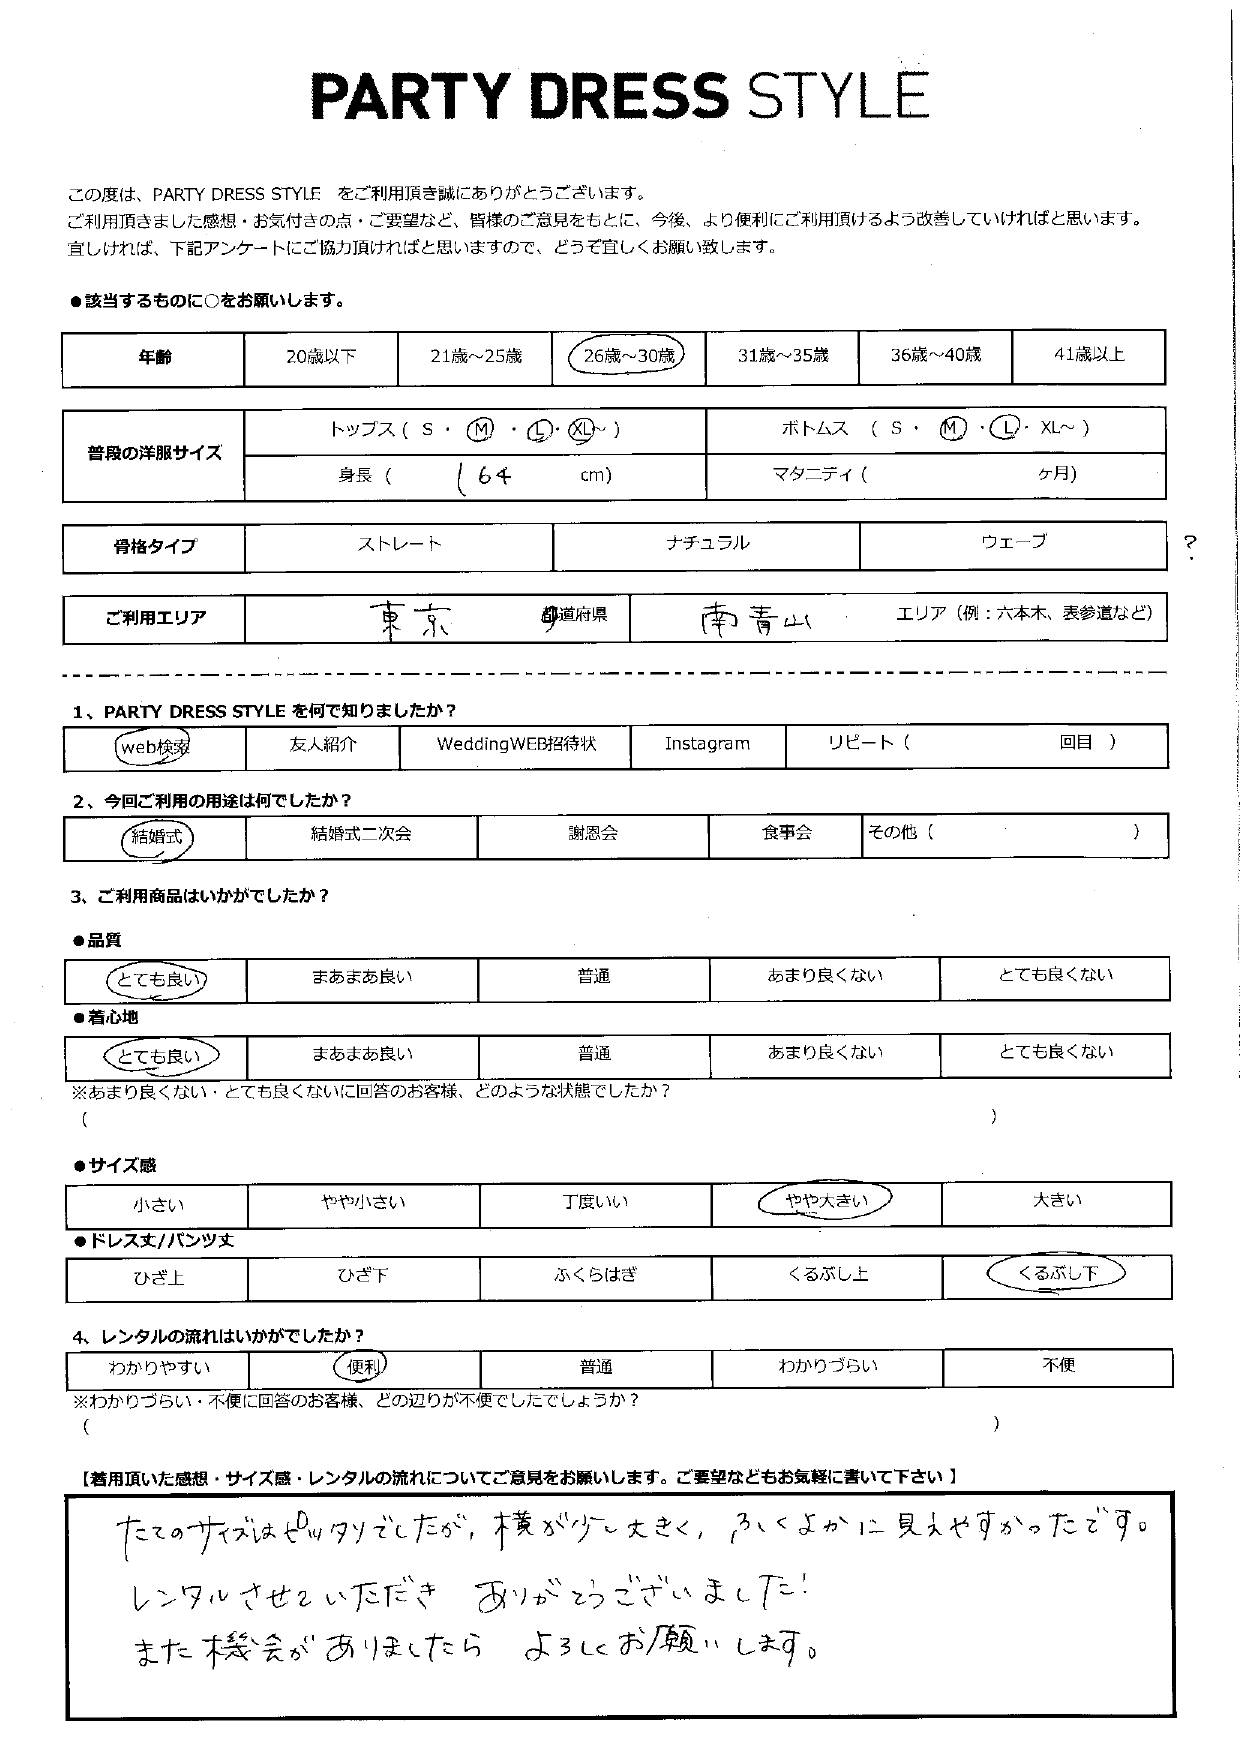 PARTY DRESS STYLE
この度は、PARTY DRESS STYLE をご利用頂き誠にありがとうございます。
ご利用頂きました感想・お気付きの点・ご要望など、皆様のご意見をもとに、今後、より便利にご利用頂けるよう改善していければと思います。
宜しければ、下記アンケートにご協力頂ければと思いますので、どうぞ宜しくお願い致します。
●該当するものに○をお願いします。
年齢 20歳以下 21歳～25歳 26歳～30歳 31歳～35歳 36歳～40歳 41歳以上
普段の洋服サイズ トップス ( S ・ M ・ L ・ XL～ ) ボトムス ( S ・ M ・ L ・ XL～ )
身長 ( 164 cm) マタニティ ( ヶ月)
骨格タイプ ストレート ナチュラル ウェーブ ?
ご利用エリア 東京 都道府県 南青山 エリア（例：六本木、表参道など）
1、PARTY DRESS STYLE を何で知りましたか？
web検索 友人紹介 WeddingWEB招待状 Instagram リピート ( 回目 )
2、今回ご利用の用途は何でしたか？
結婚式 結婚式二次会 謝恩会 食事会 その他 ( )
3、ご利用商品はいかがでしたか？
●品質
とても良い まあまあ良い 普通 あまり良くない とても良くない
●着心地
とても良い まあまあ良い 普通 あまり良くない とても良くない
※あまり良くない・とても良くないに回答のお客様、どのような状態でしたか？
( )
●サイズ感
小さい やや小さい 丁度いい やや大きい 大きい
●ドレス丈/パンツ丈
ひざ上 ひざ下 ふくらはぎ くるぶし上 くるぶし下
4、レンタルの流れはいかがでしたか？
わかりやすい 便利 普通 わかりづらい 不便
※わかりづらい・不便に回答のお客様、どの辺りが不便でしたでしょうか？
( )
【着用頂いた感想・サイズ感・レンタルの流れについてご意見をお願いします。ご要望などもお気軽に書いて下さい 】
たてのサイズはピッタリでしたが、横が少し大きく、ふくよかに見えやすかったです。
レンタルさせていただき ありがとうございました!
また機会がありましたら よろしくお願いします。